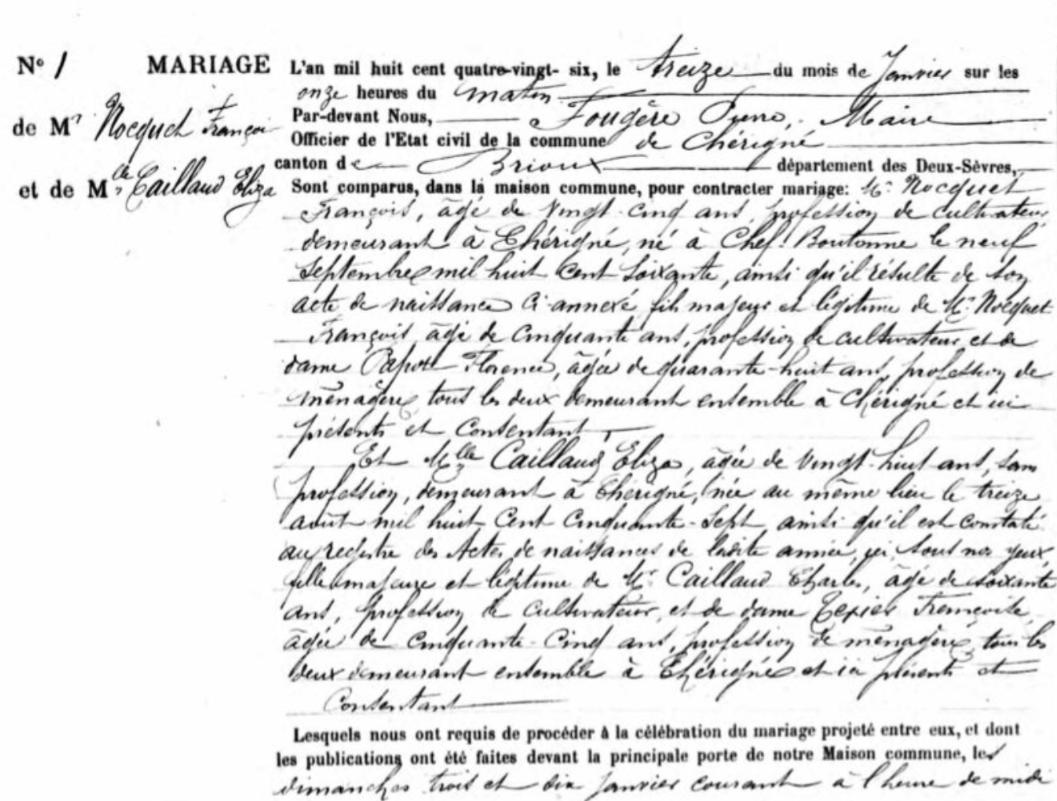 N° 1 MARIAGE
de Mr Nocquet François
et de Mlle Caillaud Eliza
L'an mil huit cent quatre-vingt- six, le treize du mois de Janvier sur les
onze heures du matin
Par-devant Nous, Fougère Pierre, Maire
Officier de l'Etat civil de la commune de Chérigné
canton de Brioux département des Deux-Sèvres,
Sont comparus, dans la maison commune, pour contracter mariage: Mr Nocquet
François, âgé de vingt-cinq ans, profession de cultivateur
demeurant à Chérigné, né à Chef-Boutonne le neuf
Septembre mil huit cent soixante, ainsi qu'il résulte de son
acte de naissance ci-annexé fils majeur et légitime de Mr Nocquet
François, âgé de cinquante ans, profession de cultivateur et de
dame Papot Florence, âgée de quarante-huit ans, profession de
ménagère, tous les deux demeurant ensemble à Chérigné et ici
présents et consentant,
Et Mlle Caillaud Eliza, âgée de vingt-huit ans, sans
profession, demeurant à Chérigné, née au même lieu le treize
août mil huit cent cinquante-sept, ainsi qu'il est constaté
au registre des Actes de naissances de ladite année, ici sous nos yeux,
fille majeure et légitime de Mr Caillaud Charles, âgé de soixante
ans, profession de cultivateur, et de dame Texier Françoise,
âgée de cinquante-cinq ans, profession de ménagère, tous les
deux demeurant ensemble à Chérigné et ici présents et
consentant
Lesquels nous ont requis de procéder à la célébration du mariage projeté entre eux, et dont
les publications ont été faites devant la principale porte de notre Maison commune, les
dimanches trois et dix Janvier courant à l'heure de midi